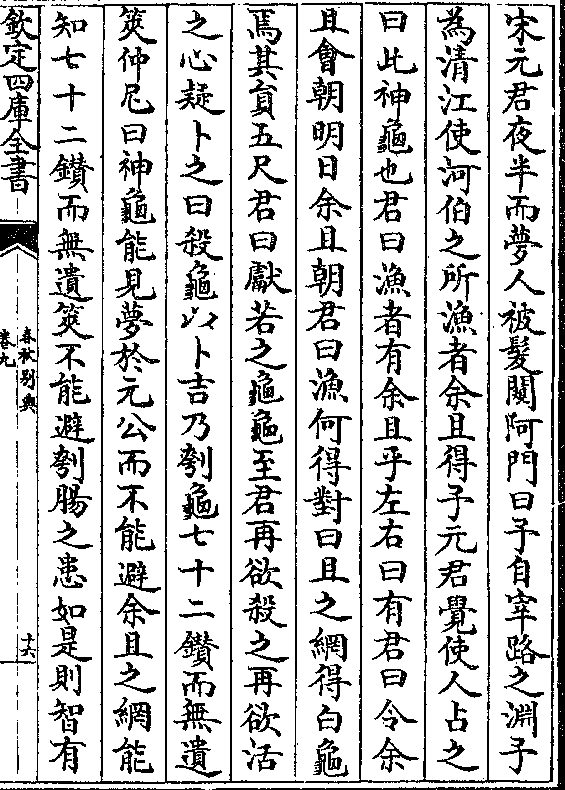 宋元君夜半而夢人被髮闚阿門曰予自宰路之淵予
為清江使河伯之所漁者余且得予元君覺使人占之
曰此神龜也君曰漁者有余且乎左右曰有君曰令余
且會朝明日余且朝君曰漁何得對曰且之網得白龜
焉其貟五尺君曰獻若之龜龜至君再欲殺之再欲活
之心疑卜之曰殺龜以卜吉乃刳龜七十二鑚而無遺
筴仲尼曰神龜能見夢於元公而不能避余且之網能
知七十二鑚而無遺筴不能避刳腸之患如是則智有
欽定四庫全書
春秋别典
卷九
十六